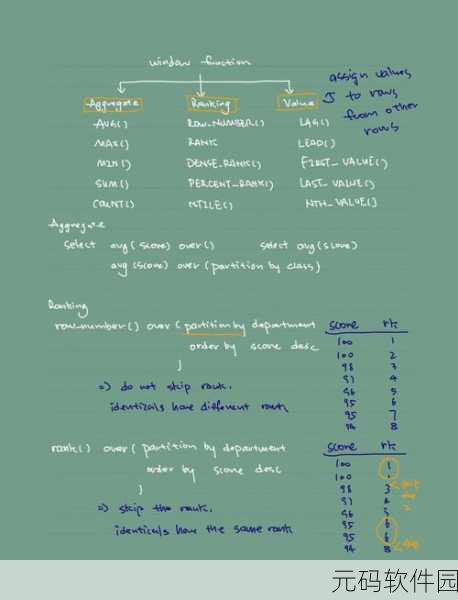 window function
Aggregate Ranking Value
assign values
to rows
from other
rows
AVG() ROW_NUMBER() LAG()
MAX() RANK LEAD()
MIN() DENSE_RANK() FIRST_VALUE()
SUM() PERCENT_RANK() LAST_VALUE()
COUNT() NTILE() NTH_VALUE()
Aggregate
select avg(score) over() select avg(score)
avg(score) over(partition by class)
Ranking
row_number() over (partition by department
order by score desc
)
=) do not skip rank.
identicals have different rank
score rk
100 1
100 2
98 3
97 4
96 5
95 6
95 7
94 8
rank() over (partition by department
order by score desc
)
=) skip the rank.
identicals have the same rank
score rk
100 1
100
98 3
97 4
96 5
95 6
95 6
94 8
元码软件园